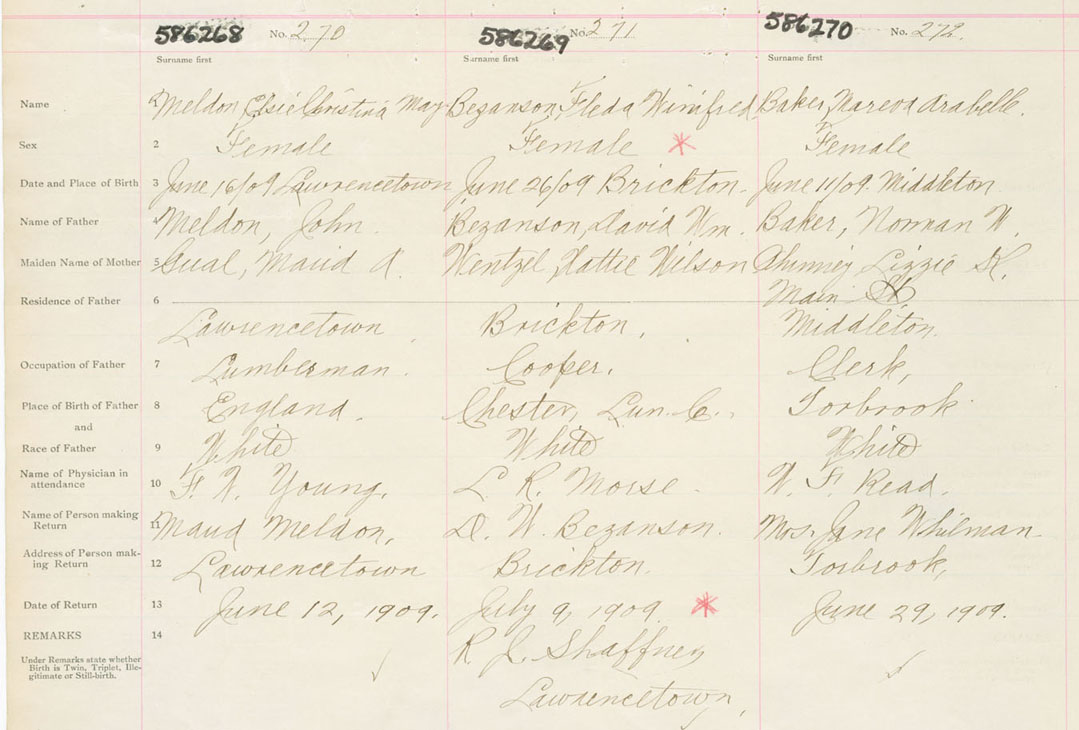 586268 No. 270 586269 No. 271 586270 No. 272.
Surname first Surname first Surname first
Name 1 Meldon, Elsie Christina May Bezanson, Fleda Winifred Baker, Arabelle.
Sex 2 Female Female * Female
Date and Place of Birth 3 June 16/09 Lawrencetown June 26/09 Brickton. June 11/09. Middleton
Name of Father 4 Meldon, John. Bezanson, David Wm. Baker, Norman W.
Maiden Name of Mother 5 Maud A. Wentzel, Hattie Wilson Phinney, Lizzie H.
Main St,
Residence of Father 6
Lawrencetown Brickton, Middleton.
Occupation of Father 7 Lumberman. Cooper. Clerk,
Place of Birth of Father 8 England. Chester, Lun. C., Torbrook
and
Race of Father 9 White White White
Name of Physician in
attendance 10 F. W. Young. L. R. Morse. W. F. Read.
Name of Person making
Return 11 Maud Meldon, D. W. Bezanson. Mrs. Jane Whilman
Address of Person mak-
ing Return 12 Lawrencetown Brickton. Torbrook,
Date of Return 13 June 12, 1909. July 9, 1909. * June 29, 1909.
REMARKS 14 R. J. Shaffney
Under Remarks state whether
Birth is Twin, Triplet, Ille-
gitimate or Still-birth.
Lawrencetown,